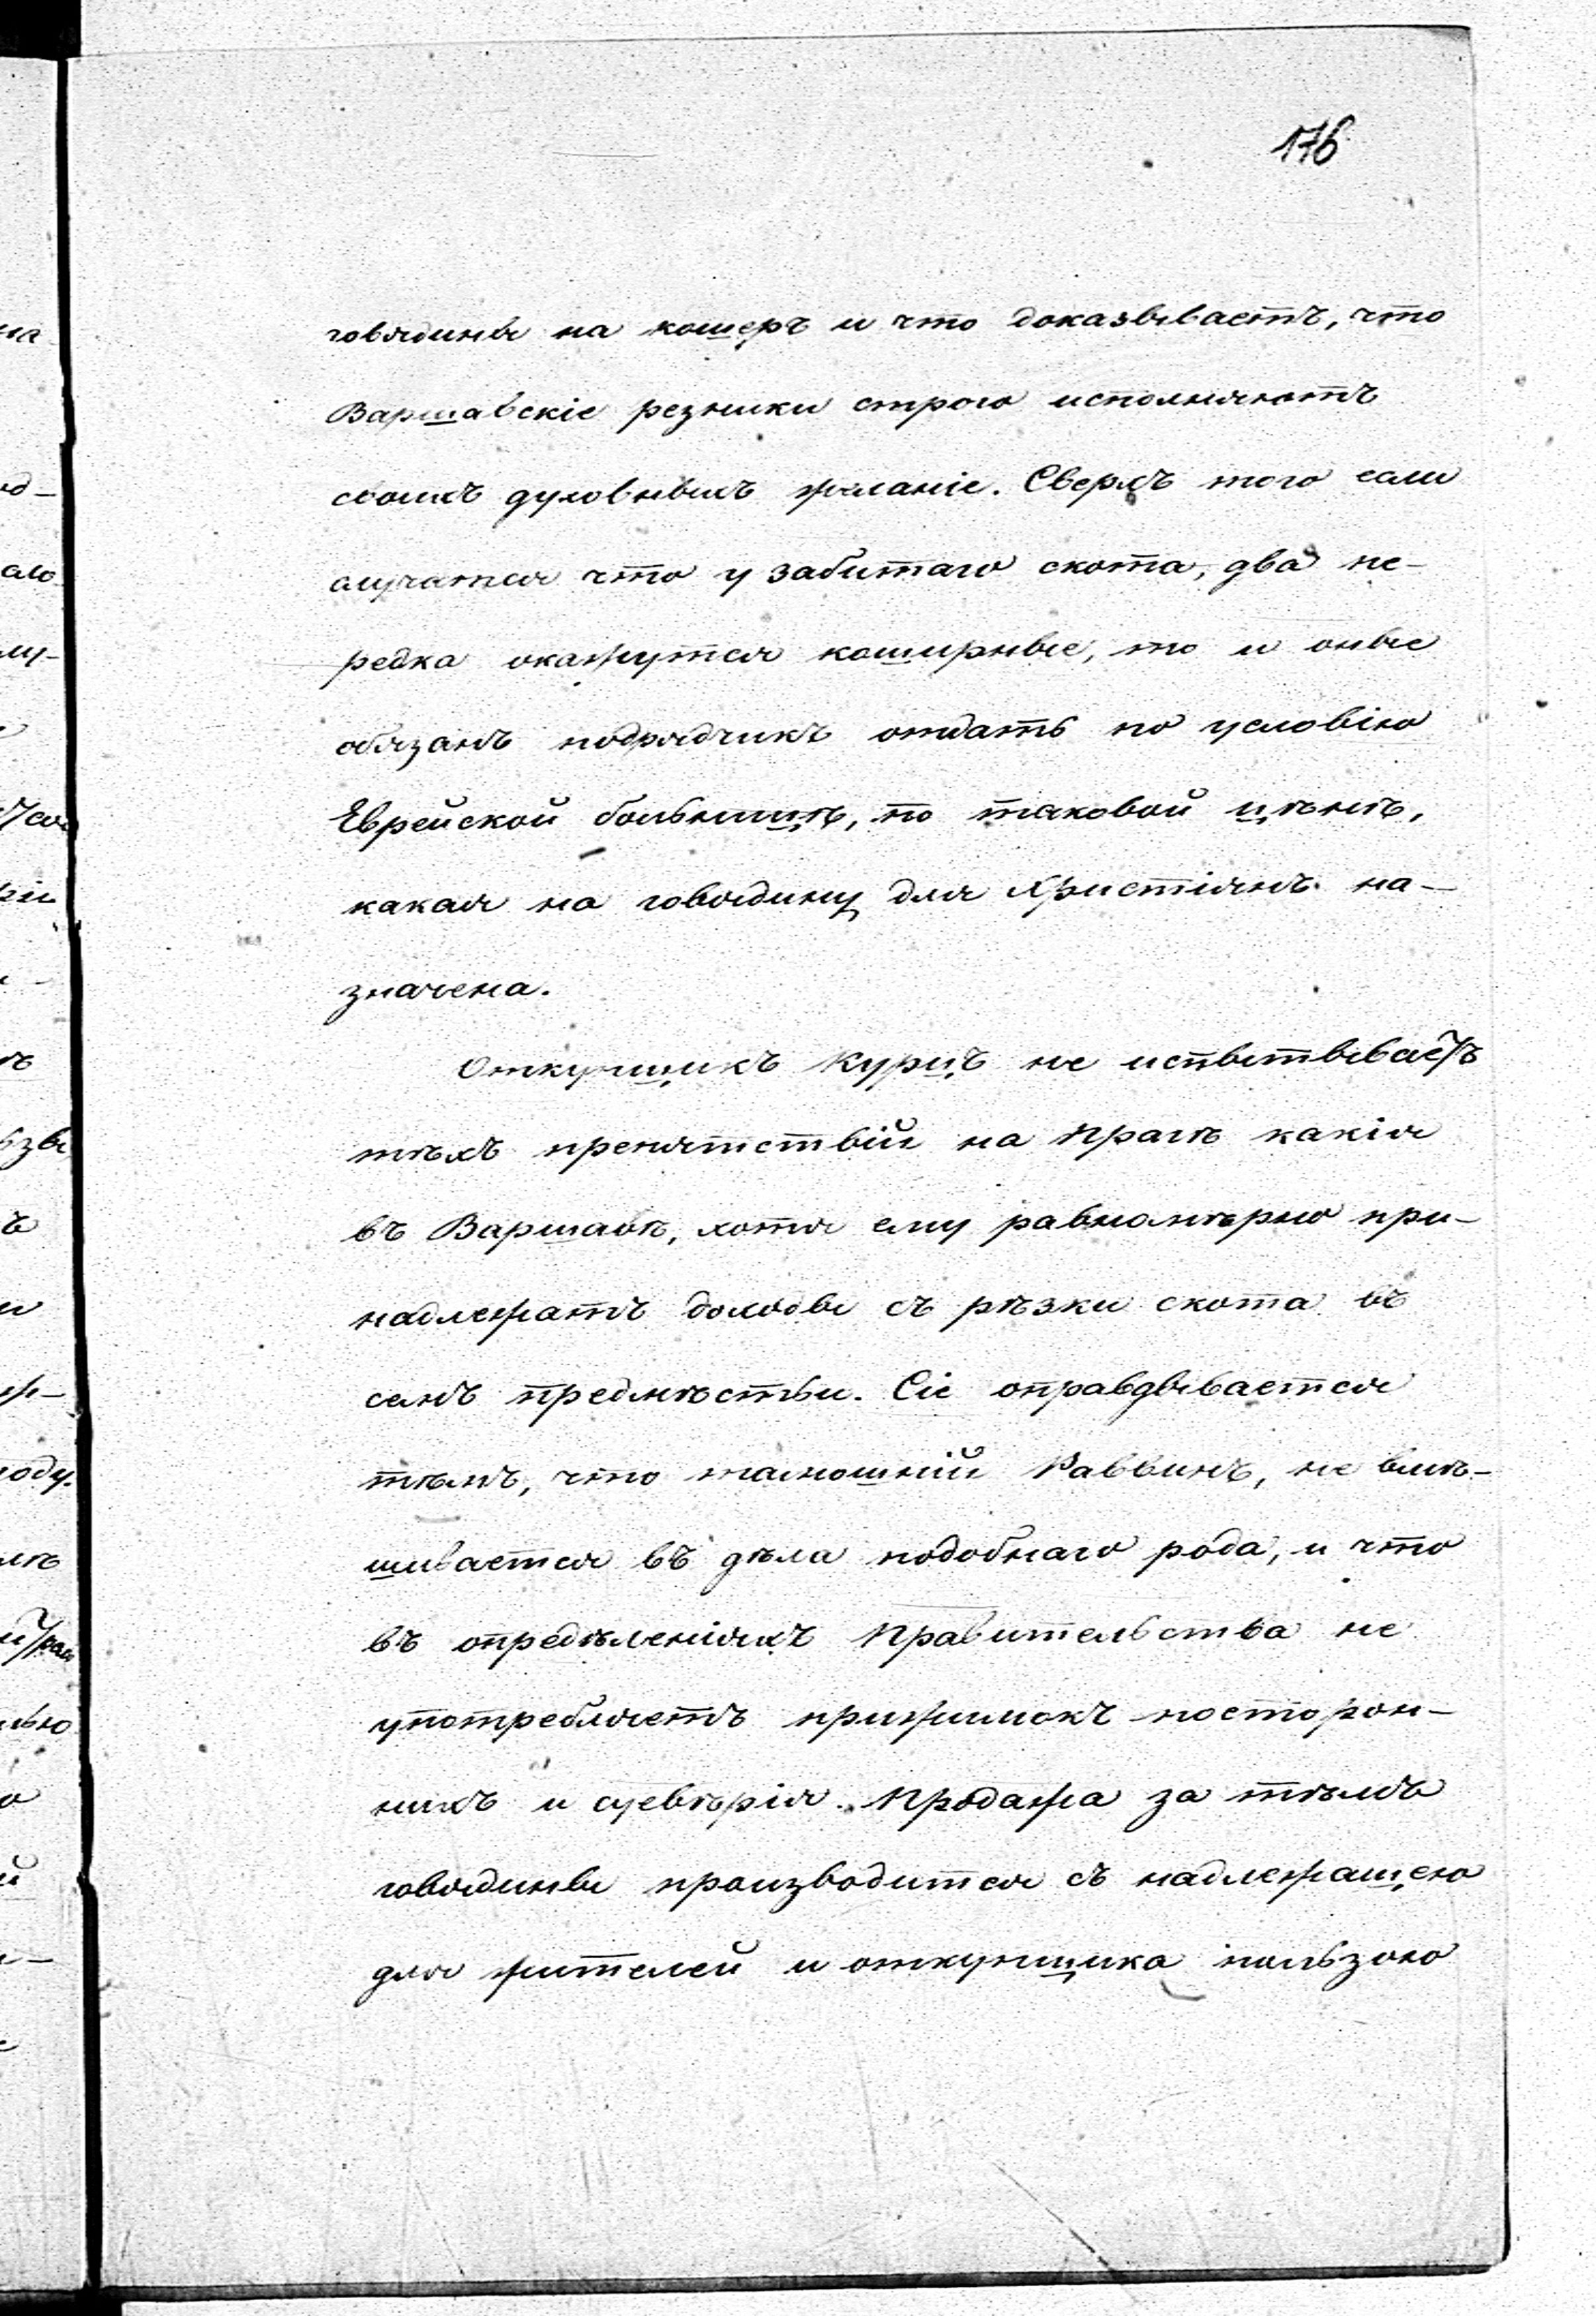 176
говядины на кошеръ и что доказываетъ, что
Варшавскіе резники строго исполняютъ
своихъ духовныхъ желаніе. Сверхъ того если
случатся что у забитаго скота, два пе-
редка окажутся коширные, то и оные
обязанъ подрядчикъ отдать по условію
Еврейской больницѣ, по таковой цѣнѣ,
какая на говядину для Христіянъ на-
значена.
Откупщикъ Курцъ не испытываетъ
тѣхъ препятствій на Прагѣ какія
въ Варшавѣ, хотя ему равномѣрно при-
надлежатъ доходы съ рѣзки скота въ
семъ предмѣстьи. Сіе оправдывается
тѣмъ, что тамошній Раввинъ, не вмѣ-
шивается въ дѣла подобнаго рода, и что
въ опредѣленіяхъ Правительства не
употребляетъ прижимокъ посторон-
нихъ и суевѣрія. Продажа за тѣмъ
говядины производится съ надлежащею
для жителей и откупщика пользою